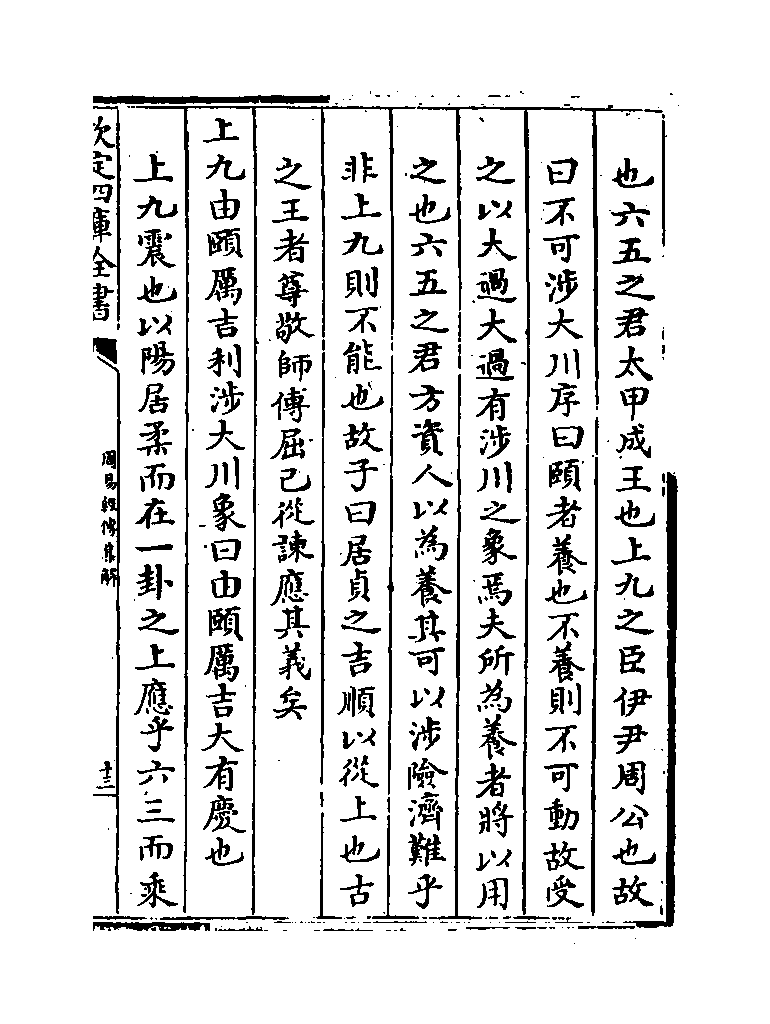 也六五之君太甲成王也上九之臣伊尹周公也故
曰不可涉大川序曰頤者養也不養則不可動故受
之以大過大過有涉川之象焉夫所為養者將以用
之也六五之君方資人以為養其可以涉險濟難乎
非上九則不能也故子曰居貞之吉順以從上也古
之王者尊敬師傅屈己從諫應其義矣
上九由頤厲吉利涉大川象曰由頤厲吉大有慶也
上九震也以陽居柔而在一卦之上應乎六三而乘
欽定四庫全書
周易經傳集解
十三